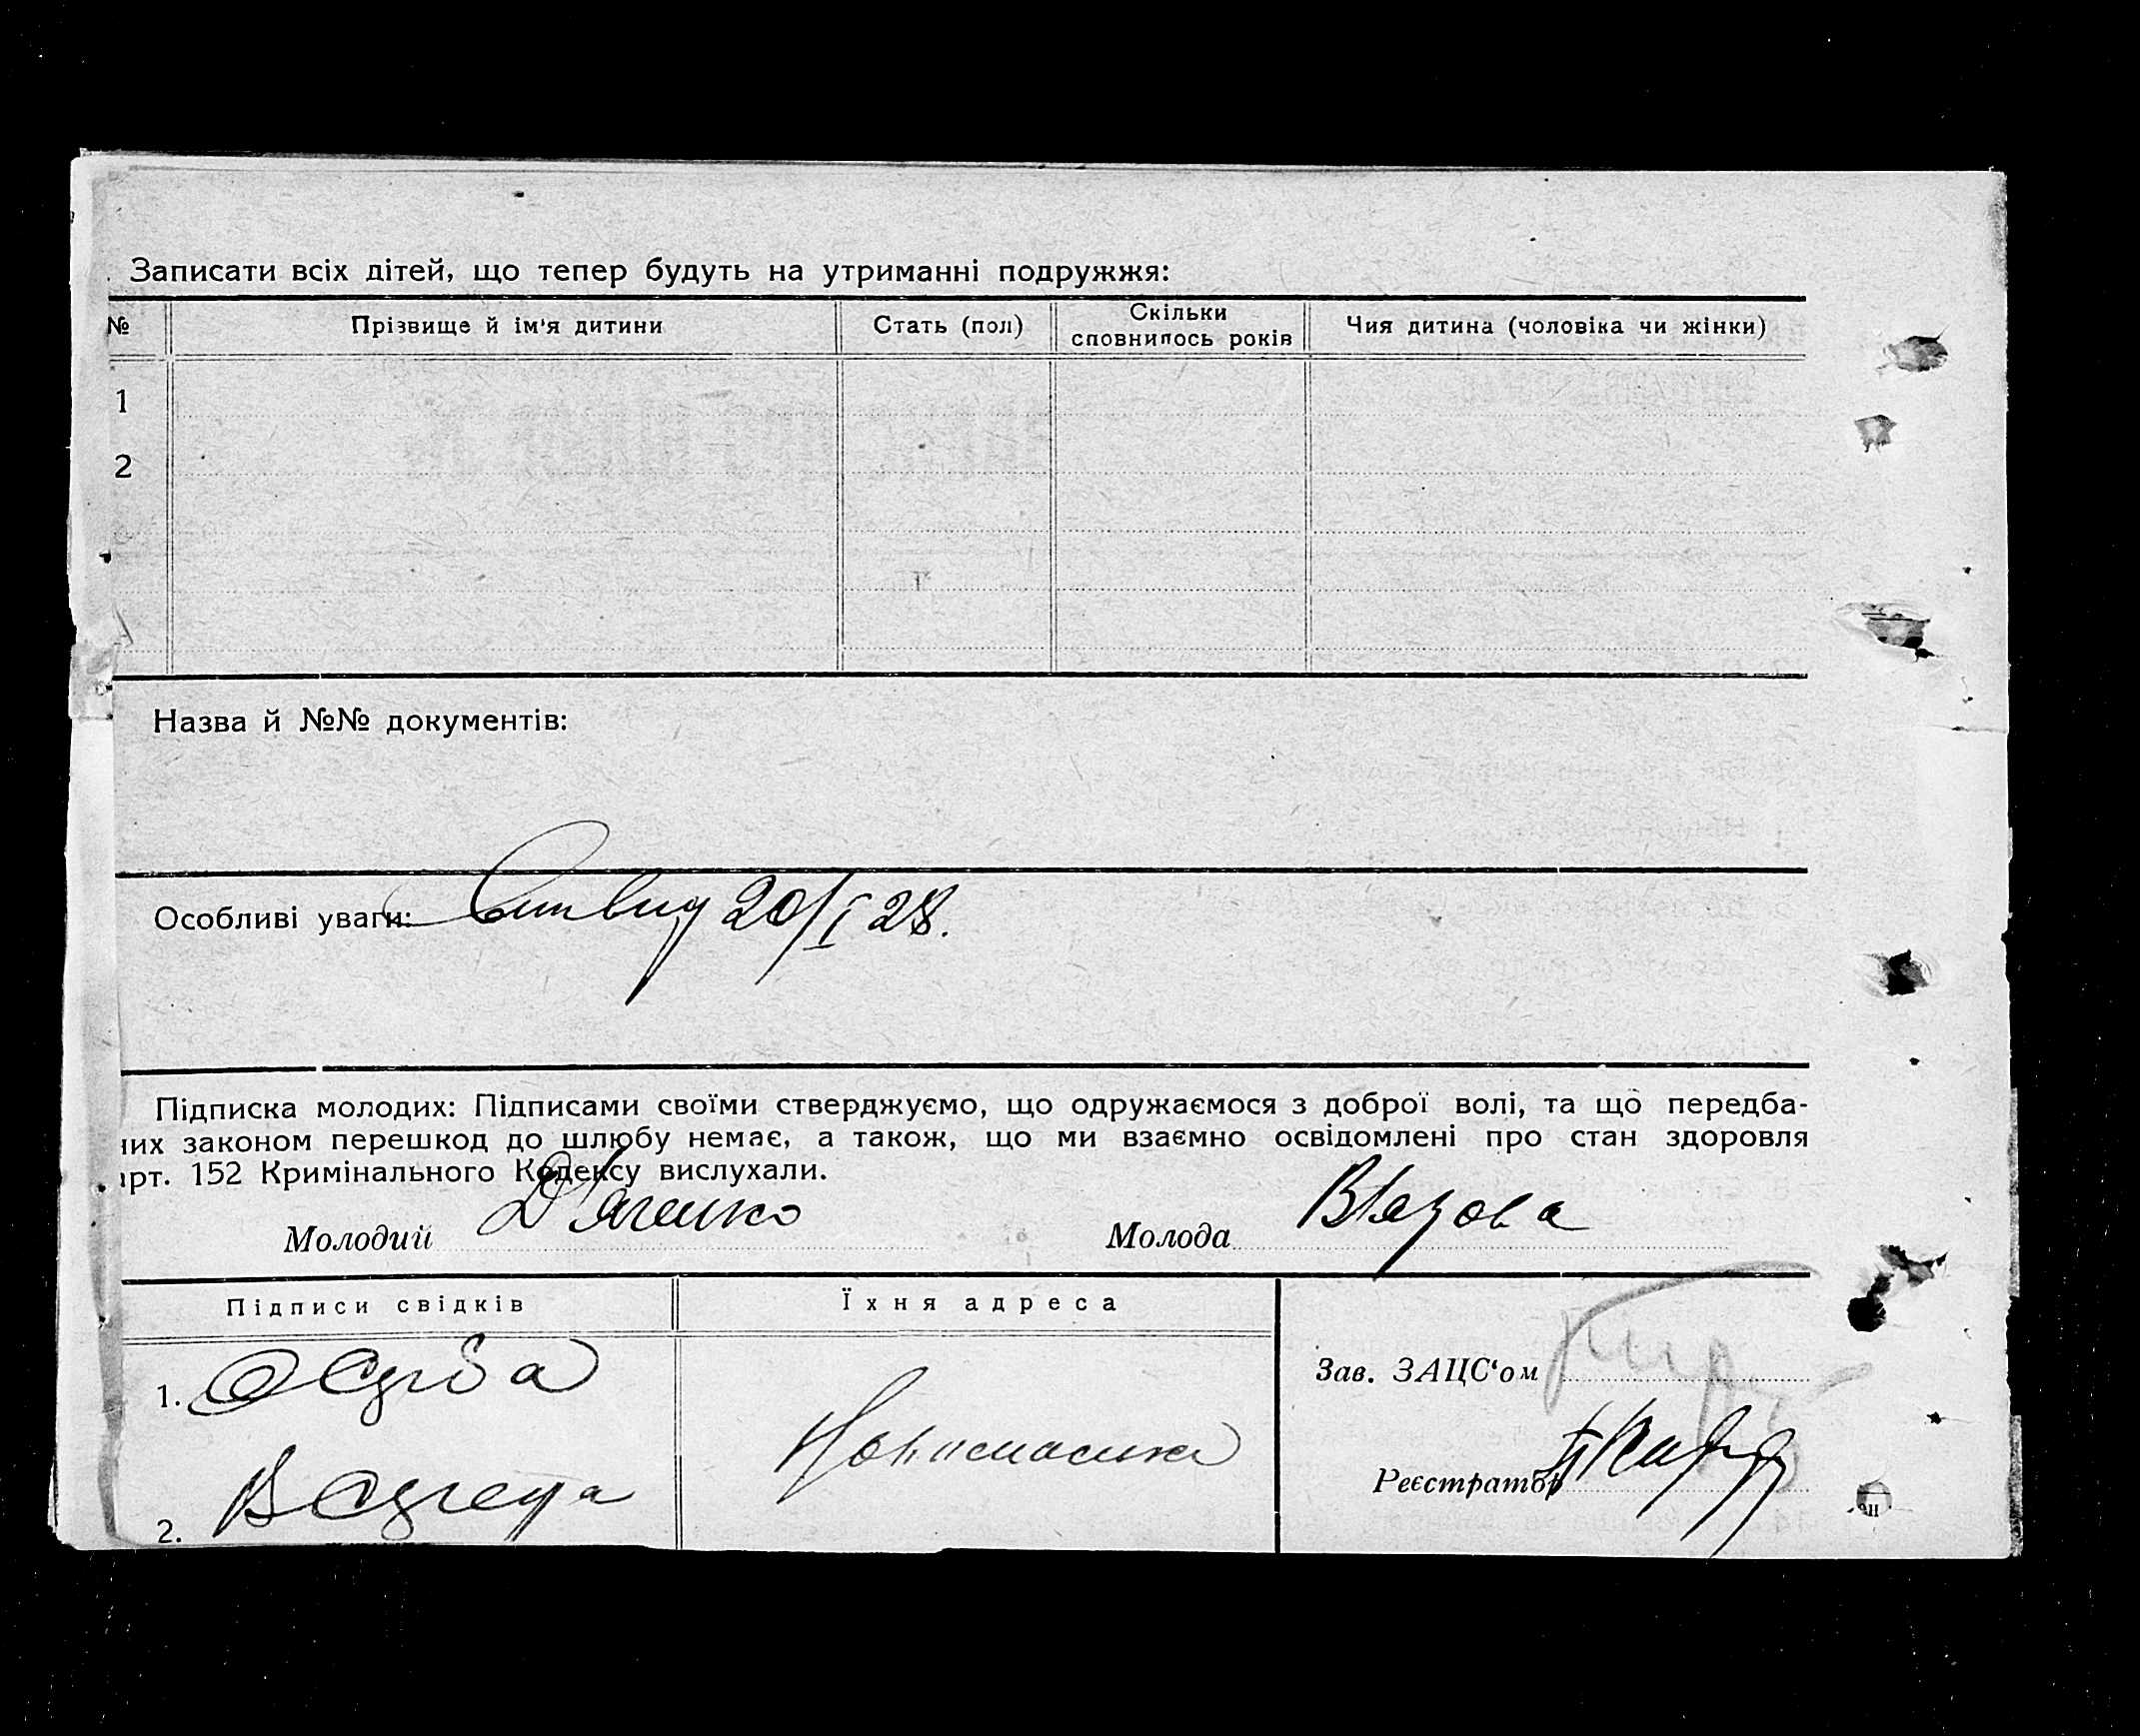 Записати всіх дітей, що тепер будуть на утриманні подружжя:
№ Прізвище й ім'я дитини Стать (пол) Скільки сповнилось років Чия дитина (чоловіка чи жінки)
1
2
Назва й №№ документів:
Особливі уваги: 20/I 28.
Підписка молодих: Підписами своїми стверджуємо, що одружаємося з доброї волі, та що передба-
них законом перешкод до шлюбу немає, а також, що ми взаємно освідомлені про стан здоровля
арт. 152 Кримінального Кодексу вислухали.
Молодий Дʼяченко Молода Вʼязова
Підписи свідків Їхня адреса
Зав. ЗАЦС‘ом
1.
Реєстратор
2.